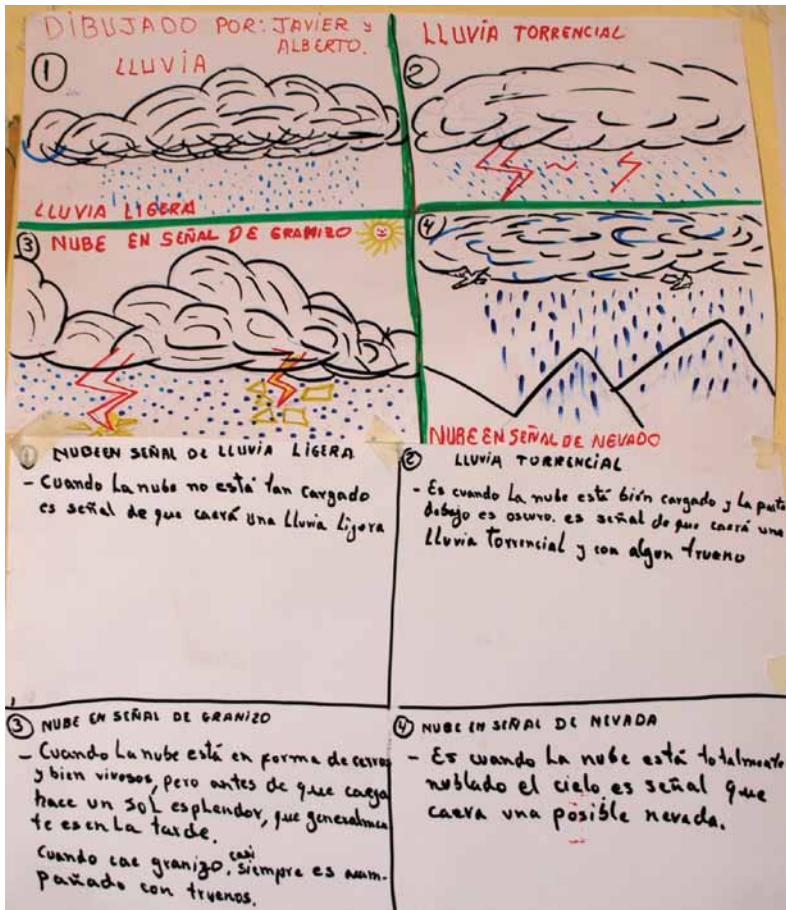 DIBUJADO POR: JAVIER y
ALBERTO.
① LLUVIA
LLUVIA LIGERA
LLUVIA TORRENCIAL
②
③ NUBE EN SEÑAL DE GRANIZO
④
NUBE EN SEÑAL DE NEVADO
① NUBE EN SEÑAL DE LLUVIA LIGERA
- Cuando La nube no está tan cargado
es señal de que caerá una Lluvia Ligera
② LLUVIA TORRENCIAL
- Es cuando La nube está bién cargado y La parte
debajo es oscuro. es señal de que caerá una
LLuvia Torrencial y con algun trueno
③ NUBE EN SEÑAL DE GRANIZO
- Cuando La nube está en forma de cerros
y bien vivosos, pero antes de que caega
hace un SOL esplendor, que generalmen
te es en La tarde.
Cuando cae granizo, casi siempre es acom-
pañado con truenos.
④ NUBE EN SEÑAL DE NEVADA
- Es cuando La nube está totalmente
nublado el cielo es señal que
caera una posible nevada.